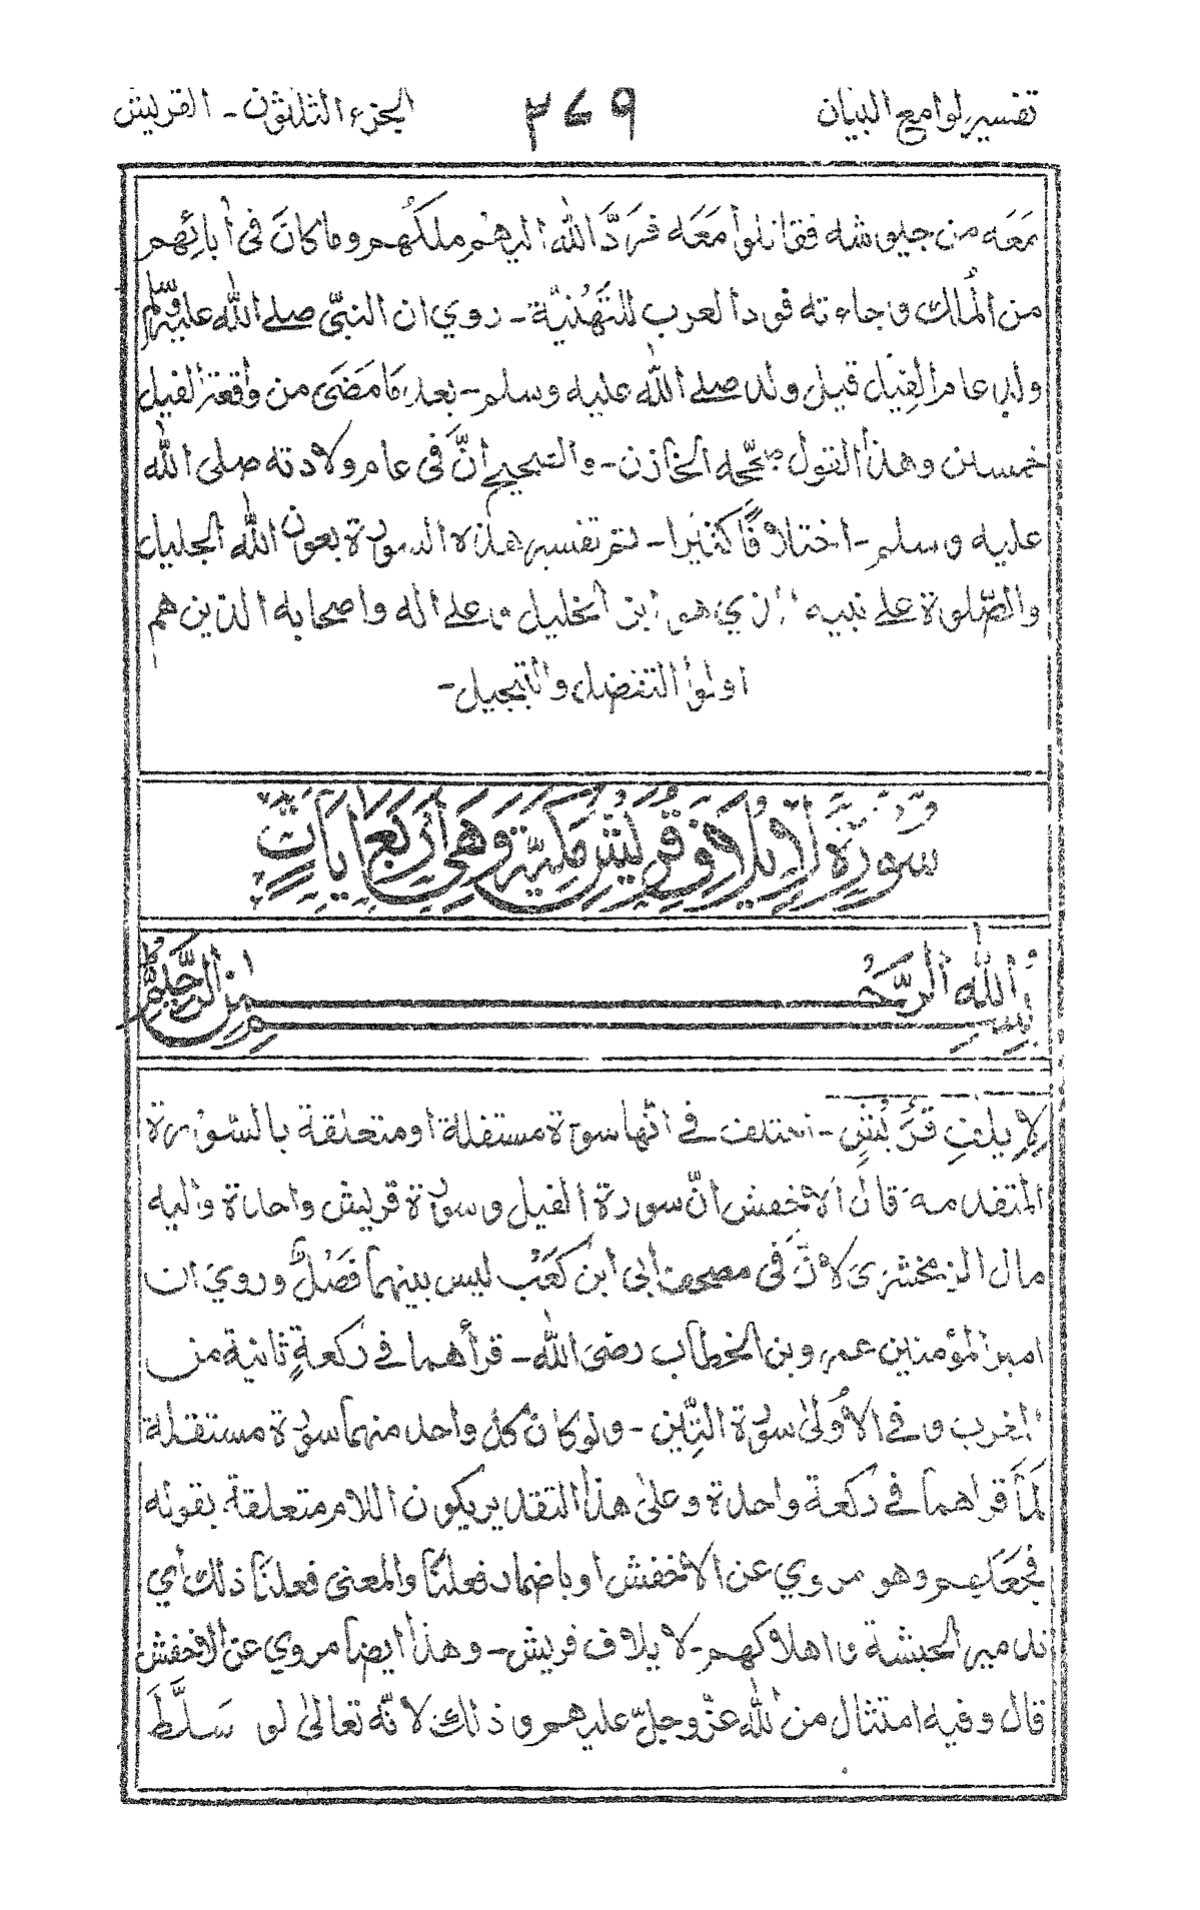 تفسير لوامع البيان ٢٧٩ الجزء الثلثون - القريش
مَعَه من جيوشه فقاتلوا مَعَه فَرَدَّ الله اليهم ملكَهُم وما كانَ في أبائِهم
من المُلك وجاءته وفود العرب للتَهْنِيَّة - روي ان النبيّ صلے الله عليه وسلم
ولد عام الفيل قيل ولد صلے الله عليه وسلم - بعد مَا مَضَى من واقعة الفيل
خمسين وهذا القول صححّه الخازن - والصحيح أنَّ في عام ولادته صلى الله
عليه وسلم - اختلافًا كثيرا - تم تفسير هذه السورة بعون الله الجليل
والصّلوة علے نبيه الذي هو ابن الخليل وعلے اله واصحابه الذين هم
اولوا التفضل والتبجيل -
سُورَةُ لِإِيْلَافِ قُرَيْشٍ مَكِيَّةٌ وَهِيَ أَرْبَعُ اٰيَاتٍ
بِسْمِ اللهِ الرَّحْمٰنِ الرَّحِيْمِ
لِإِيلٰفِ قُرَيْشٍ - اختلف في انّها سورة مستقلة او متعلقة بالسّورة
المتقدمة قال الاخفش انّ سورة الفيل وسورة قريش واحدة واليه
مال الزمخشرى لانَّ في مصحف ابي ابن كَعْب ليس بينهما فَصْلٌ وروي ان
امير المؤمنين عمر وبن الخطاب رضى الله - قرأهما في ركعةٍ ثانية من
المغرب و في الأُولىٰ سورة التِّين - ولو كان كل واحد منهما سورة مستقلة
لَمَا قراهما في ركعة واحدة وعلىٰ هذا التقدير يكون اللام متعلقة بقوله
فَجَعَلَهم وهو مروي عن الاخفش او باضمار فعلنَا والمعنى فعلنَا ذلك أي
تدمير الحبشة و اهلاكهم - لايلاف قريش - وهذا ايضا مروي عن الاخفش
قال وفيه امتثال من الله عزّ وجلّ عليهم و ذلك لانّه تعالىٰ لو سَلَّطَ